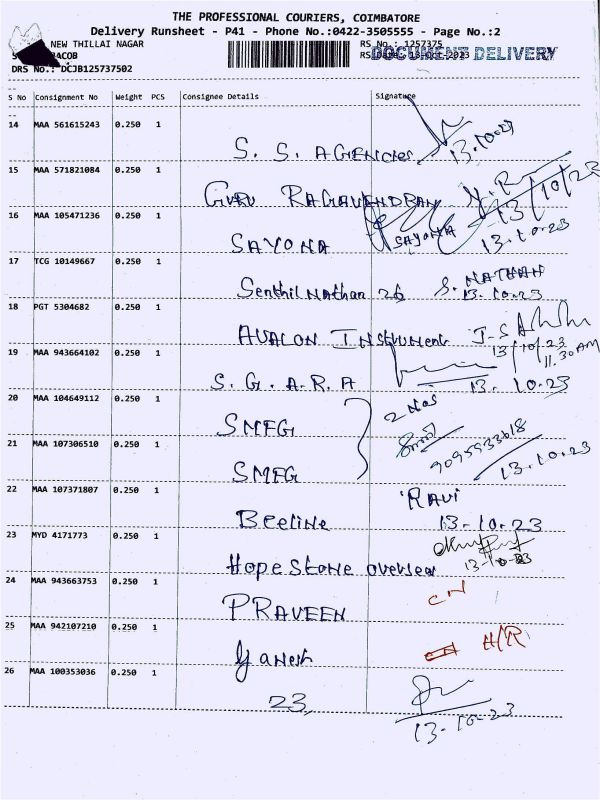 THE PROFESSIONAL COURIERS, COIMBATORE
Delivery Runsheet - P41 - Phone No.:0422-3505555 - Page No.:2
NEW THILLAI NAGAR RS No.: 1257375
ACOB DOCUMENT DELIVERY
DRS No.: DCJB125737502
S No Consignment No Weight PCS Consignee Details Signature
14 MAA 561615243 0.250 1
S. S. AGENCIES 13.10.23
15 MAA 571821084 0.250 1
GURU RAGAVENDRAN 13/10/23
16 MAA 105471236 0.250 1
SAYONA SAYONA 13.10.23
17 TCG 10149667 0.250 1
Senthil Nathan 26 S. NATHAN
13.10.23
18 PGT 5304682 0.250 1
AVALON INSTRUMENT
13/10/23
11.30AM
19 MAA 943664102 0.250 1
S. G. A. R. A 13. 10.23
20 MAA 104649112 0.250 1
SMFG 2 Nos
21 MAA 107306510 0.250 1
SMFG 13.10.23
22 MAA 107371807 0.250 1
RAVI
Beeline 13-10-23
23 MYD 4171773 0.250 1
Hope Stone oversea
24 MAA 943663753 0.250 1
PRAVEEN CN
25 MAA 942107210 0.250 1
H/R
Ganesh
26 MAA 100353036 0.250 1
23
13-10-23